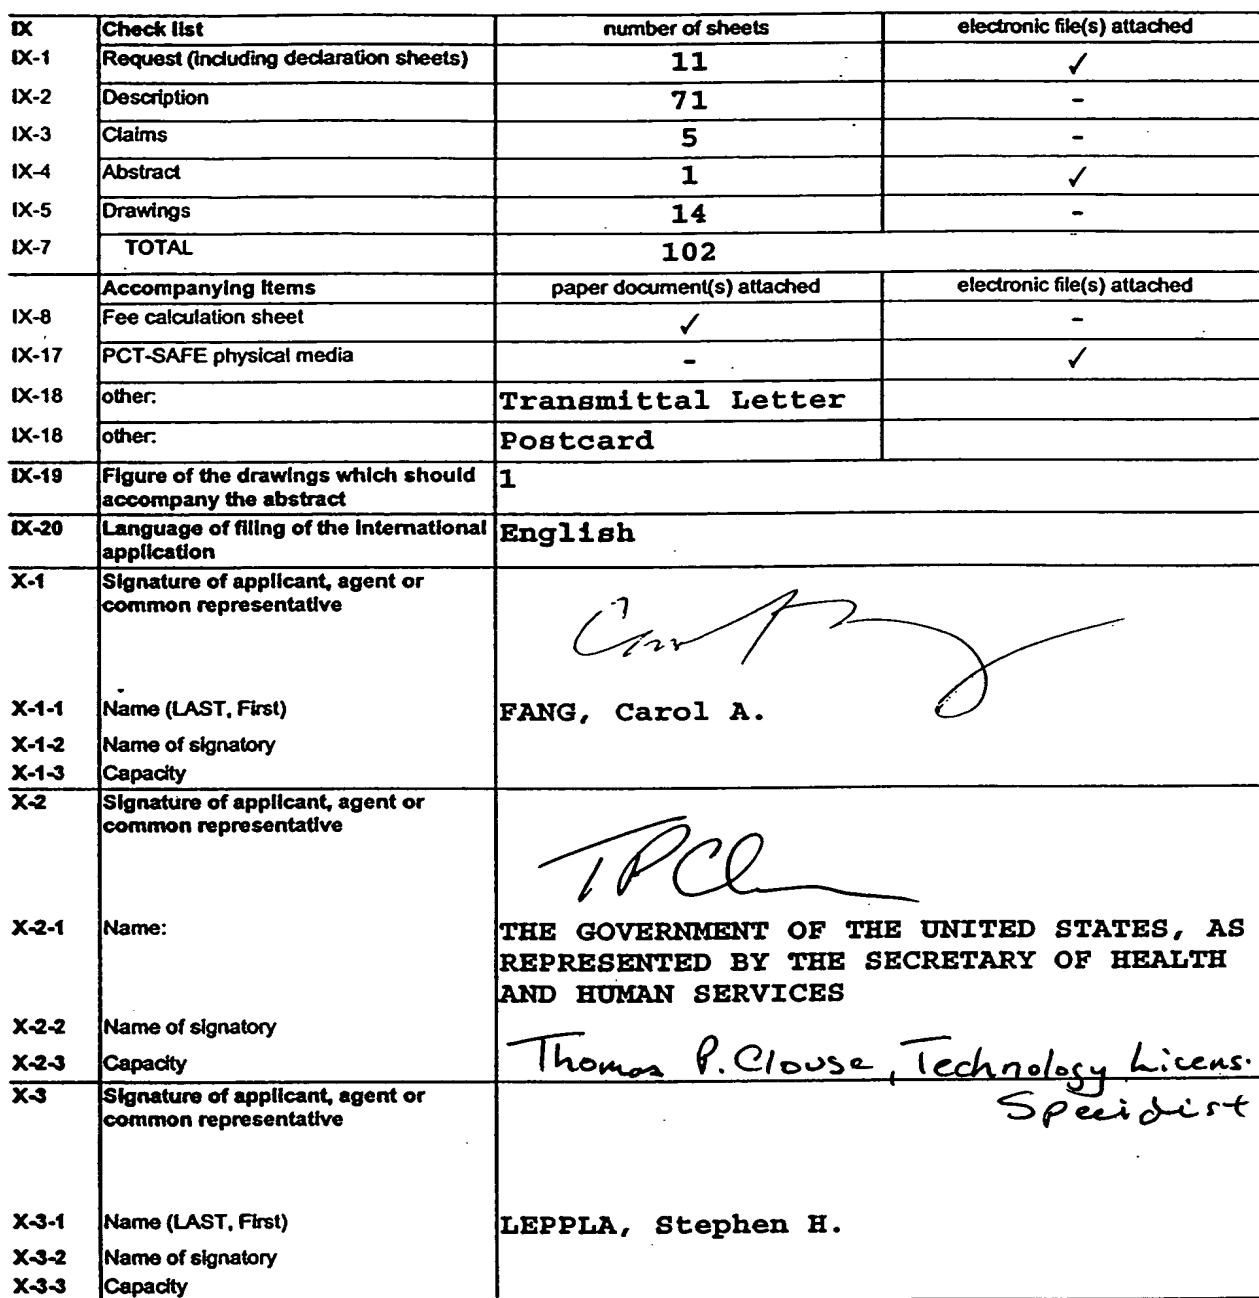 IX Check list number of sheets electronic file(s) attached
IX-1 Request (including declaration sheets) 11 ✓
IX-2 Description 71 -
IX-3 Claims 5 -
IX-4 Abstract 1 ✓
IX-5 Drawings 14 -
IX-7 TOTAL 102
Accompanying Items paper document(s) attached electronic file(s) attached
IX-8 Fee calculation sheet ✓ -
IX-17 PCT-SAFE physical media - ✓
IX-18 other: Transmittal Letter
IX-18 other: Postcard
IX-19 Figure of the drawings which should 1
accompany the abstract
IX-20 Language of filing of the international English
application
X-1 Signature of applicant, agent or
common representative
X-1-1 Name (LAST, First) FANG, Carol A.
X-1-2 Name of signatory
X-1-3 Capacity
X-2 Signature of applicant, agent or
common representative
X-2-1 Name: THE GOVERNMENT OF THE UNITED STATES, AS
REPRESENTED BY THE SECRETARY OF HEALTH
AND HUMAN SERVICES
X-2-2 Name of signatory
X-2-3 Capacity Thomas P. Clouse, Technology Licens.
Specialist
X-3 Signature of applicant, agent or
common representative
X-3-1 Name (LAST, First) LEPPLA, Stephen H.
X-3-2 Name of signatory
X-3-3 Capacity